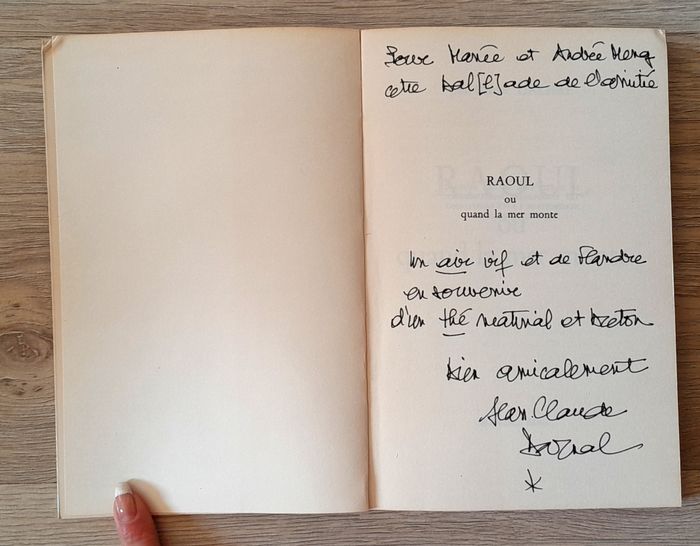 Pour Manée et Andrée Merq
cette Bal[l]ade de l'amitié
RAOUL
ou
quand la mer monte
Un air vif et de Flandre
en souvenir
d'un thé matinal et breton
bien amicalement
Jean Claude
Darnal